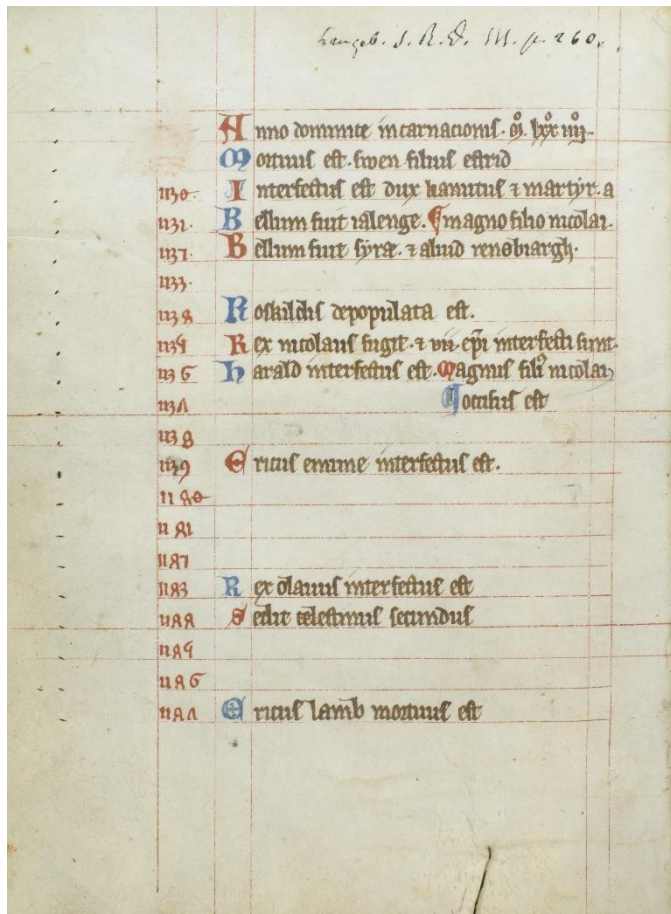 Langeb. S. R. D. III. p. 260.
Anno dominice incarnacionis. m̊. lxx̊ iiij̊.
Mortuus est. swen filius estrid
1130. Interfectus est dux kanutus ⁊ martyr. a
1131. Bellum fuit ialenge. ¶ magno filio nicolai.
1132. Bellum fuit syræ. ⁊ aliud rensbiargh.
1133.
1134 Roskildis depopulata est.
1135 Rex nicolaus fugit. ⁊ vii. ep̄i interfecti sunt.
1136 Harald interfectus est. Magnus filiꝰ nicolai
1137 ¶ occisus est
1138
1139 Ericus emune interfectus est.
1140
1141
1142
1143 Rex olauus interfectus est
1144 Sedit celestinus secundus
1145
1146
1147 Ericus lamb mortuus est